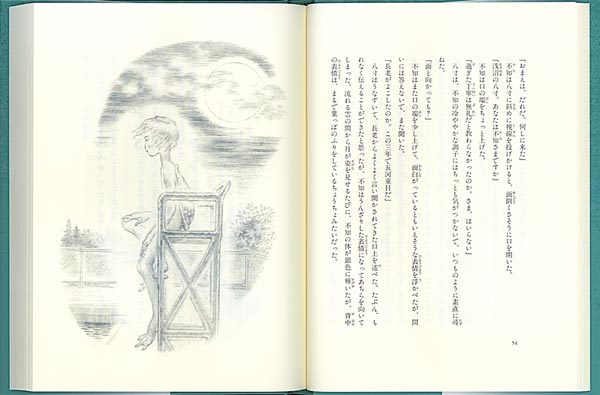 『おまえは、だれだ。何しに来た』
不知は八寸に斜めに視線を投げかけると、面倒くさそうに口を開いた。
『浅沼の八寸。あなたは不知さまですか』
不知は口の端をちょっと上げた。
『過ぎた丁寧は無礼だと教わらなかったのか。さま、はいらない』
八寸は、不知の冷ややかな調子にはちっとも気がつかないで、いつものように素直に尋
ねた。
『面と向かっても？』
不知はまた口の端を少し上げて、面白がっているともいえそうな表情を浮かべたが、問
いには答えないで、また聞いた。
『長老がよこしたのか。この三年で五河童目だ』
八寸はうなずいて、長老からよくよく言い聞かされてきた口上を述べた。たぶん、も
れなく伝えることができたと思ったが、不知はうんざりした表情になってあちらを向いて
しまった。流れる雲の間から月が姿を見せるたびに、不知の体が銀色に輝いたが、背中
の表情は、まるで葉っぱのふりをしているちょうちょみたいだった。
54